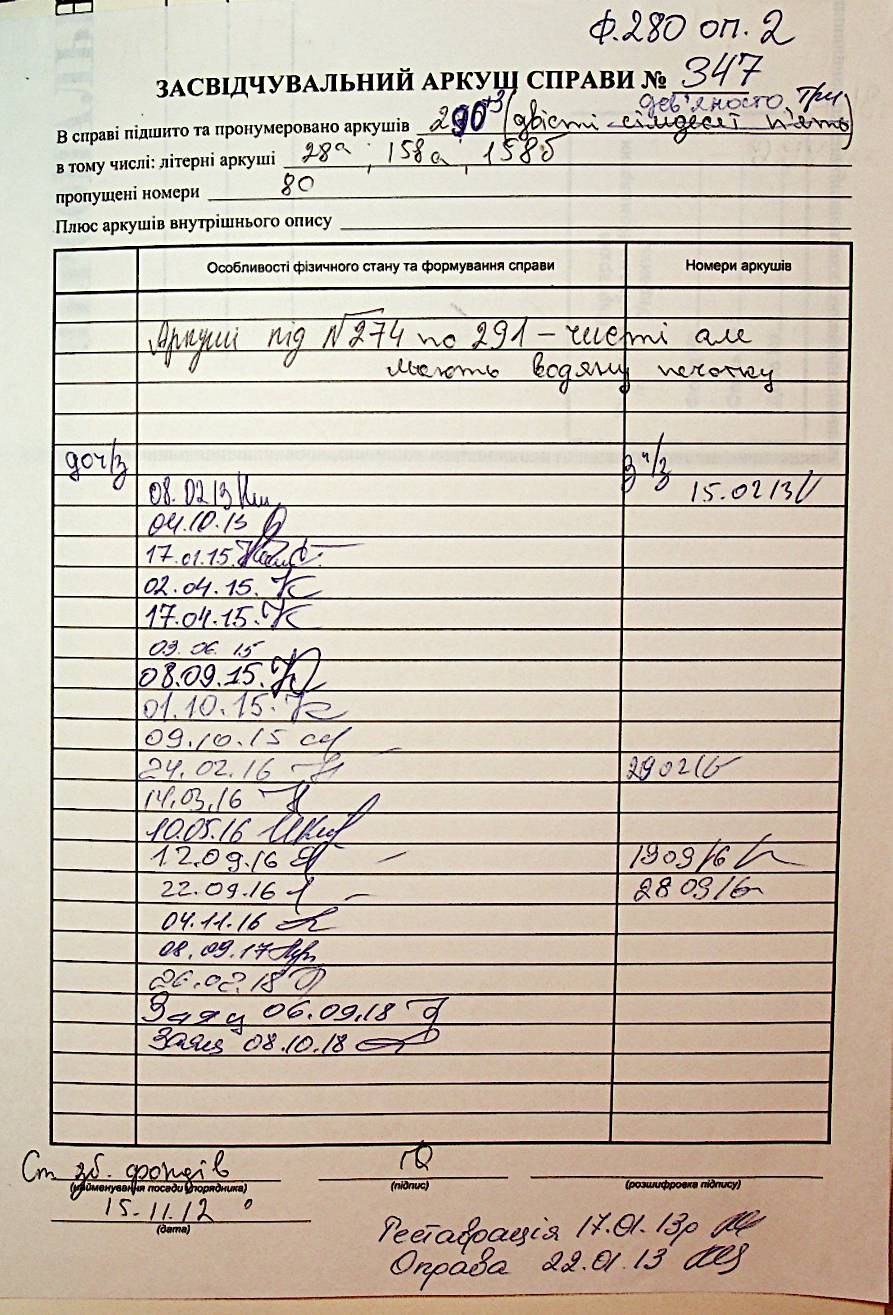 Ф.280 оп. 2
ЗАСВІДЧУВАЛЬНИЙ АРКУШ СПРАВИ № 347
дев'яносто три
В справі підшито та пронумеровано аркушів 290+3 (двісті сімдесят п'ять)
в тому числі: літерні аркуші 28а, 158а, 158б
пропущені номери 80
Плюс аркушів внутрішнього опису
Особливості фізичного стану та формування справи Номери аркушів
Аркуші під №274 по 291 – чисті але
мають водяну печатку
до ч/з з ч/з
08.02.13 15.0213
04.10.13
17.01.15.
02.04.15.
17.04.15.
03.06.15
08.09.15.
01.10.15.
09.10.15
24.02.16 290216
14.03.16
10.05.16
12.09.16 190916
22.09.16 280916
04.11.16
08.09.17
26.02.18
Заяц 06.09.18
Заяц 08.10.18
Ст. зб. фондів
(найменування посади упорядника) (підпис) (розшифровка підпису)
15.11.12
(дата)
Реставрація 17.01.13р
Оправа 22.01.13